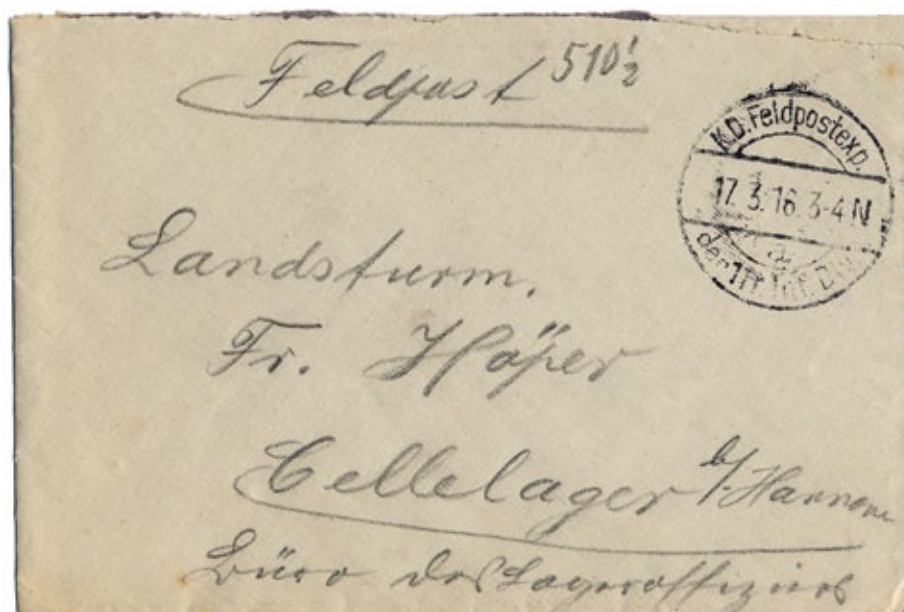 Feldpost 510 1/2
K.D. Feldpostexp.
17. 3. 16. 3-4 N
a
der 111. Inf. Div.
Landsturm.
Fr. Höper
Cellelager b/Hannover
Büro des Lageroffiziers